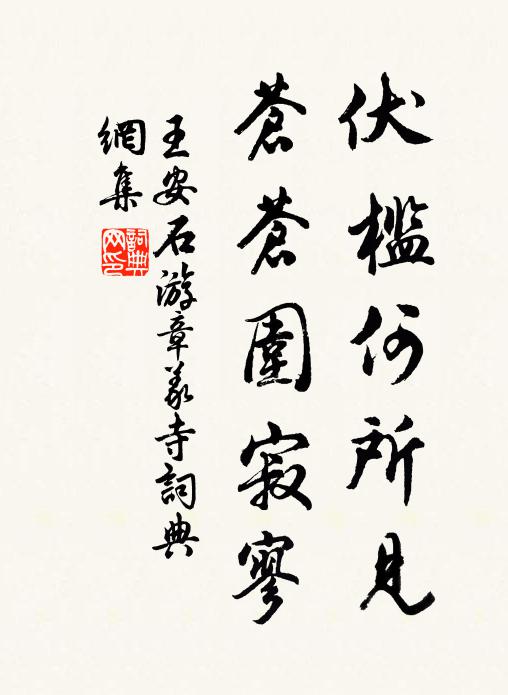 伏檻何所見
蒼蒼圍寂寥
王安石游章義寺詞典
網集
詞典
網印